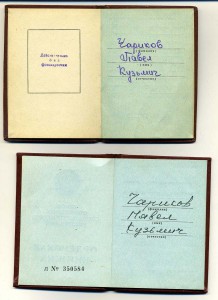 Действительно
без
фотокарточки
Чариков
(фамилия)
Павел
(имя)
Кузьмич
(отчество)
Чариков
(фамилия)
Павел
(имя)
Кузьмич
(отчество)
Л № 350584